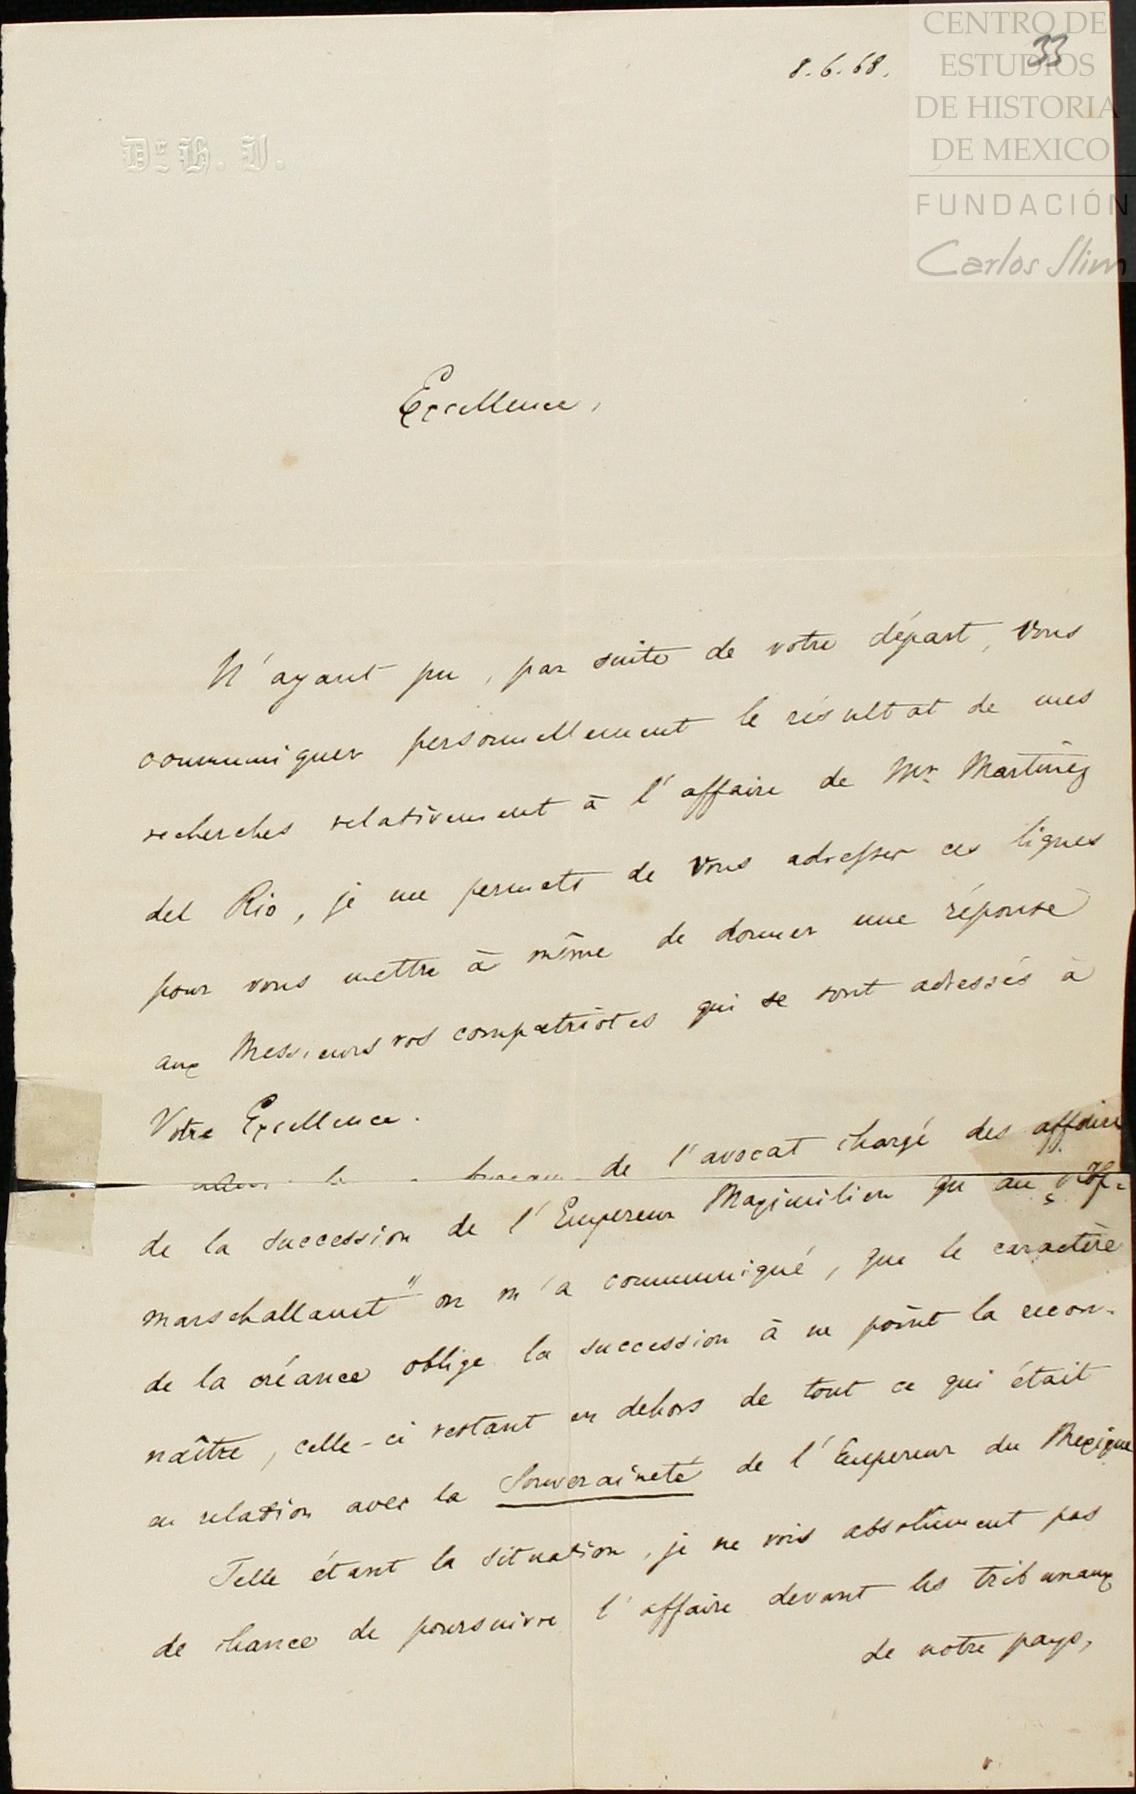 CENTRO DE
ESTUDIOS
DE HISTORIA
DE MEXICO
FUNDACIÓN
Carlos Slim
33
8. 6. 68.
Excellence,
N'ayant pu, par suite de votre départ, vous
communiquer personnellement le résultat de mes
recherches relativement à l'affaire de Mr Martinez
del Rio, je me permets de vous adresser ces lignes
pour vous mettre à même de donner une réponse
aux Messieurs vos compatriotes qui se sont adressés à
Votre Excellence.
bureau de l'avocat chargé des affaires
de la succession de l'Empereur Maximilien qu'au „Hof-
marschallamt" on m'a communiqué, que le caractère
de la créance oblige la succession à ne point la recon-
naître, celle-ci restant en dehors de tout ce qui était
en relation avec la Souveraineté de l'Empereur du Mexique
Telle étant la situation, je ne vois absolument pas
de chance de poursuivre l'affaire devant les tribunaux
de notre pays,